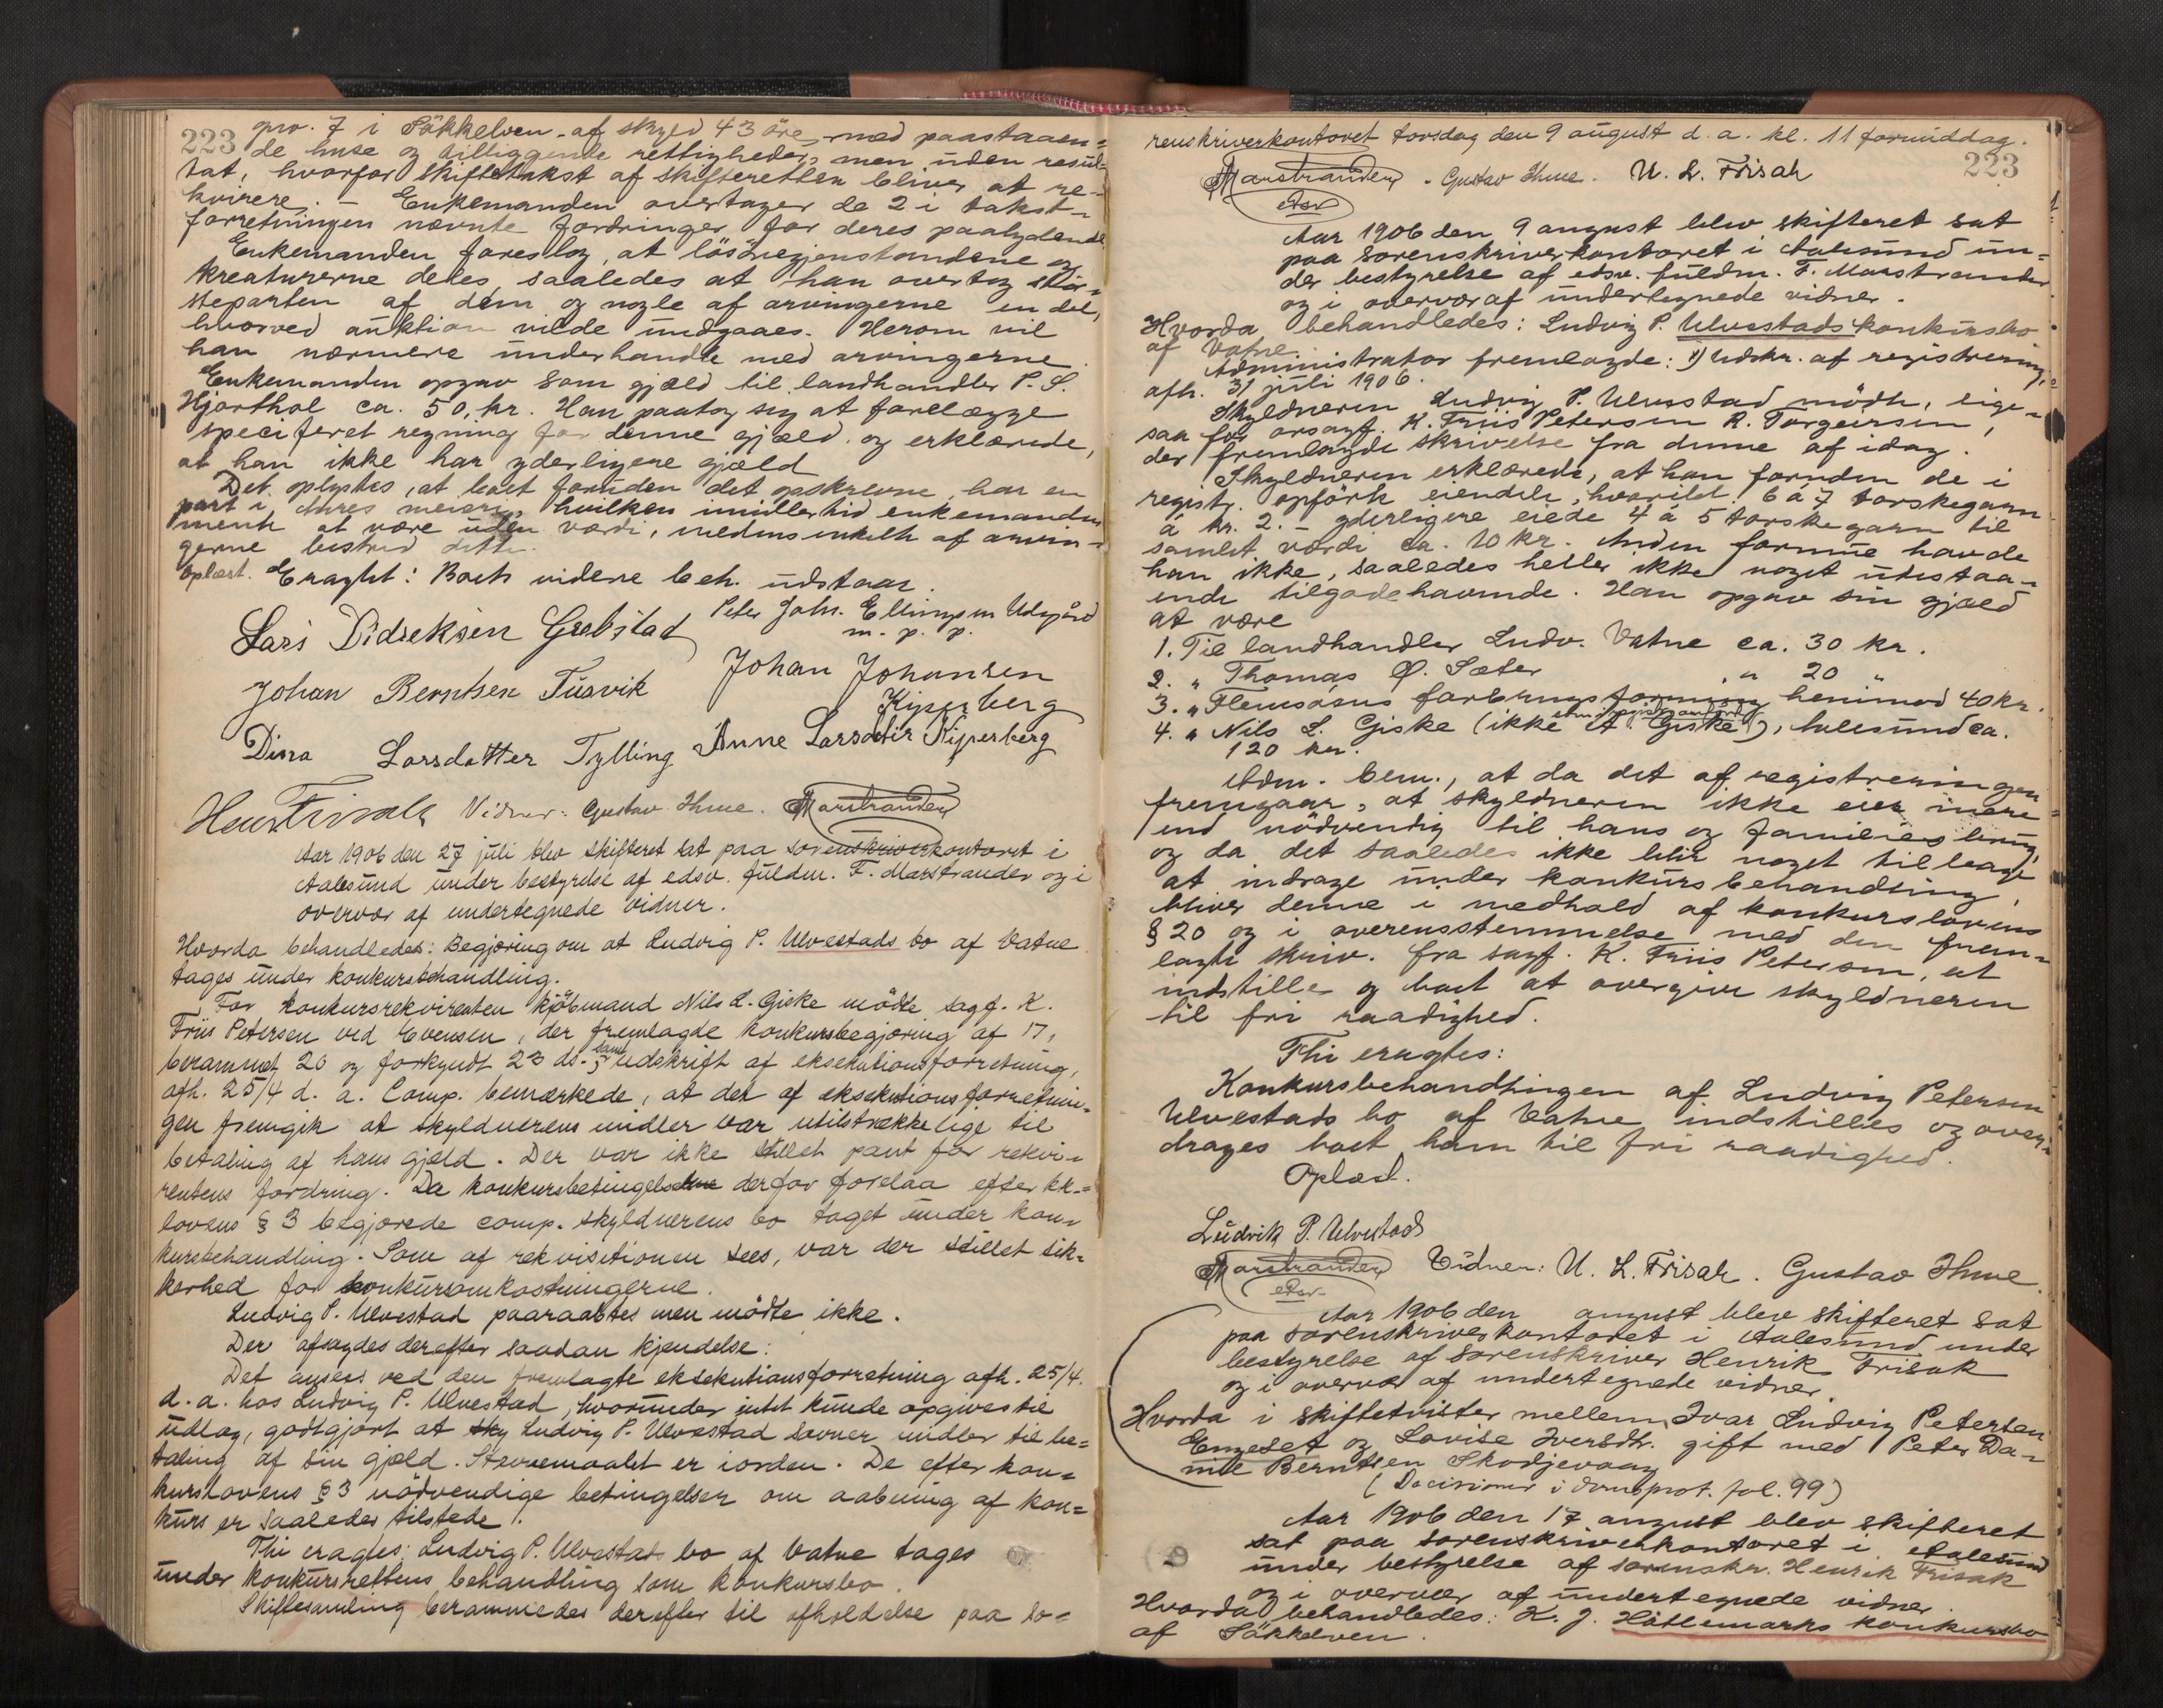 223
gnr. 7 i Søkkelven af skyld 43 øre, med paastaaen=
de huse og tilliggende rettigheder, men uden resul-
tat, hvorfor skiftetakst af skifteretten bliver at re-
kvirere. - Enkemanden overtager de 2 i takst-
forretningen nævnte fordringer for deres paalydende.
Enkemanden foreslog, at løsøregjenstandene og
kreaturerne deles saaledes at han overtog stør-
steparten af dem og nogle af arvingerne en del,
hvorved auktion vilde undgaaes. Herom vil
han nærmere underhandle med arvingerne.
Enkemanden opgav som gjæld til landhandler P. S.
Hjorthol ca. 50, kr. Han paatog sig at forelægge
specificeret regning for denne gjæld og erklærede,
at han ikke har yderligere gjæld
Det oplystes, at boet foruden det opskrevne, har en
part i Aures meieri, hvilken imidlertid enkemanden
mente at være uden værdi, medens enkelte af arvin-
gerne bestred dette.
Oplæst. Eragtet: Boets videre beh. udstaar.
Lars Didreksen Grebstad
Peter Johs. Ellingsen Udgård
m. p. p.
Johan Berntsen Tusvik
Johan Johansen
Kipperberg
Dina Larsdatter Tylling
Anne Larsdatter Kipperberg
Henr Frisak Vidner: Gustav Ihme. FMarstrander
Aar 1906 den 27 juli blev skifteret sat paa sorenskriverkontoret i
Aalesund under bestyrelse af edsv. fuldm. F. Marstrander og i
overvær af undertegnede vidner.
Hvorda behandledes: Begjæring om at Ludvig P. Ulvestads bo af Vatne
tages under konkursbehandling.
For konkursrekvirenten kjøbmand Nils L. Giske mødte sagf. K.
Friis Petersen ved Evensen, der fremlagde konkursbegjæring af 17,
berammet 20 og forkyndt 23 ds. samt udskrift af eksekutionsforretning,
afh. 25/4 d. a. Comp. bemærkede, at det af eksekutionsforretnin-
gen fremgik at skyldnerens midler var utilstrækkelige til
betaling af hans gjæld. Der var ikke stillet pant for rekvi-
rentens fordring. Da konkursbetingelserne derfor forelaa efter kk.=
lovens § 3 begjærede comp. skyldnerens bo taget under kon-
kursbehandling. Som af rekvisitionen sees, var der stillet sik-
kerhed for konkursomkostningerne.
Ludvig P. Ulvestad paaraabtes men mødte ikke.
Der afsagdes derefter saadan kjendelse:
Det ansees ved den fremlagte eksekutionsforretning afh. 25/4
d. a. hos Ludvig P. Ulvestad, hvorunder intet kunde opgives til
udlæg, godtgjort at sky Ludvig P. Ulvestad savner midler til be=
taling af sin gjæld. Stevnemaalet er i orden. De efter kon=
kurslovens § 3 nødvendige betingelser om aabning af kon=
kurs er saaledes tilstede.
Thi eragtes: Ludvig P. Ulvestads bo af Vatne tages
under konkursrettens behandling som konkursbo.
Skiftesamling berammedes derefter til afholdelse paa so=
renskriverkontoret torsdag den 9 august d. a. kl. 11 formiddag.
223
FMarstrander . Gustav Ihme. U. L. Frisak
edsv
Aar 1906 den 9 august blev skifteret sat
paa sorenskriverkontoret i Aalesund un=
der bestyrelse af edsv. fuldm. F. Marstrander
og i overvær af undertegnede vidner.
Hvorda behandledes: Ludvig P. Ulvestads konkursbo
af Vatne.
Administrator fremlagde: 1) Udskr. af registrering,
afh. 31 juli 1906.
Skyldneren Ludvig P. Ulvestad mødte, lige-
saa for orsagf. K. Friis Petersen R. Torgersen,
der fremlagde skrivelse fra denne af idag.
Skyldneren erklærede, at han foruden de i
registr. opførte eiendele, hvoribl. 6 à 7 torskegarn
à kr. 2. - yderligere eiede 4 à 5 torskegarn til
samlet værdi ca. 10 kr. Anden formue havde
han ikke, saaledes heller ikke noget udestaa-
ende tilgodehavende. Han opgav sin gjæld
at være
1. Til landhandler Ludv. Vatne ca. 30 kr.
2. " Thomas O. Sæter " 20 "
3. " Flemsøens farbrugsforening henimod 40 kr.
4. " Nils L. Giske (ikke A. Giske), Aalesund ca.
120 kr.
Adm. bem., at da det af registreringen
fremgaar, at skyldneren ikke eier mere
end nødvendig til hans og families brug,
og da det saaledes ikke blir noget tilbage
at inddrage under konkursbehandling,
bliver denne i medhold af konkurslovens
§ 20 og i overensstemmelse med den frem=
lagte skriv. fra sagf. K. Friis Petersen, at
indstille og boet at overgive skyldneren
til fri raadighed.
Thi eragtes:
Konkursbehandlingen af Ludvig Petersen
Ulvestads bo af Vatne indstilles og over-
drages boet ham til fri raadighed.
Oplæst.
Ludvik P. Ulvestad
FMarstrander Vidner: U. L. Frisak. Gustav Ihme.
edsv.
Aar 1906 den august blev skifteret sat
paa sorenskriverkontoret i Aalesund under
bestyrelse af sorenskriver Henrik Frisak
og i overvær af undertegnede vidner.
Hvorda i skiftetvister mellem Ivar Ludvig Petersen
Emzeset og Lovise Iversdtr. gift med Peter Da-
niel Berntsen Skodjevaag
(Decisioner i domsprot. fol. 99)
Aar 1906 den 17 august blev skifteret
sat paa sorenskriverkontoret i Aalesund
under bestyrelse af sorenskr. Henrik Frisak
og i overvær af undertegnede vidner.
Hvorda behandledes: K. J. Hatlemarks konkursbo
af Søkkelven.